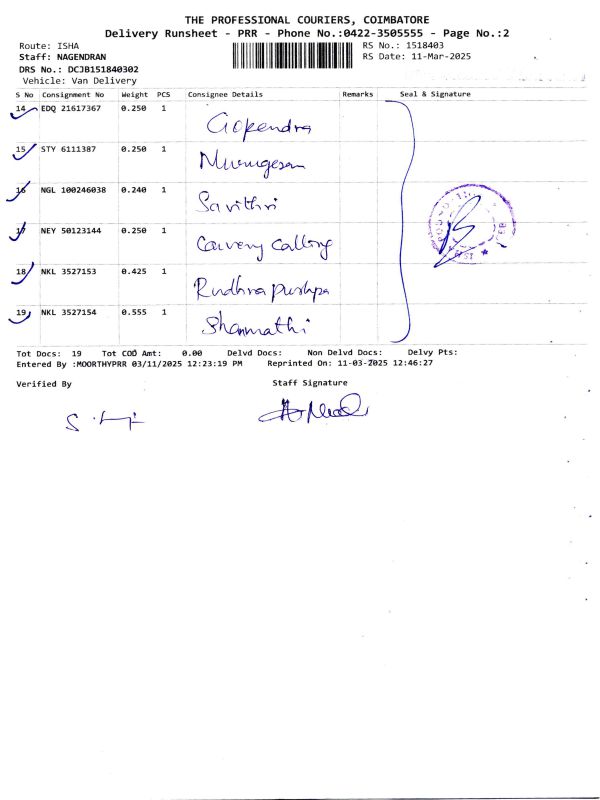 THE PROFESSIONAL COURIERS, COIMBATORE
Delivery Runsheet - PRR - Phone No.:0422-3505555 - Page No.:2
Route: ISHA RS No.: 1518403
Staff: NAGENDRAN RS Date: 11-Mar-2025
DRS No.: DCJB151840302
Vehicle: Van Delivery
S No Consignment No Weight PCS Consignee Details Remarks Seal & Signature
14 EDQ 21617367 0.250 1 Gopendra
15 STY 6111387 0.250 1 Murugesan
16 NGL 100246038 0.240 1 Savithri
17 NEY 50123144 0.250 1 Cauvery Calling
18 NKL 3527153 0.425 1 Rudhra pushpa
19 NKL 3527154 0.555 1 Shanmathi
Tot Docs: 19 Tot COD Amt: 0.00 Delvd Docs: Non Delvd Docs: Delvy Pts:
Entered By :MOORTHYPRR 03/11/2025 12:23:19 PM Reprinted On: 11-03-2025 12:46:27
Verified By Staff Signature